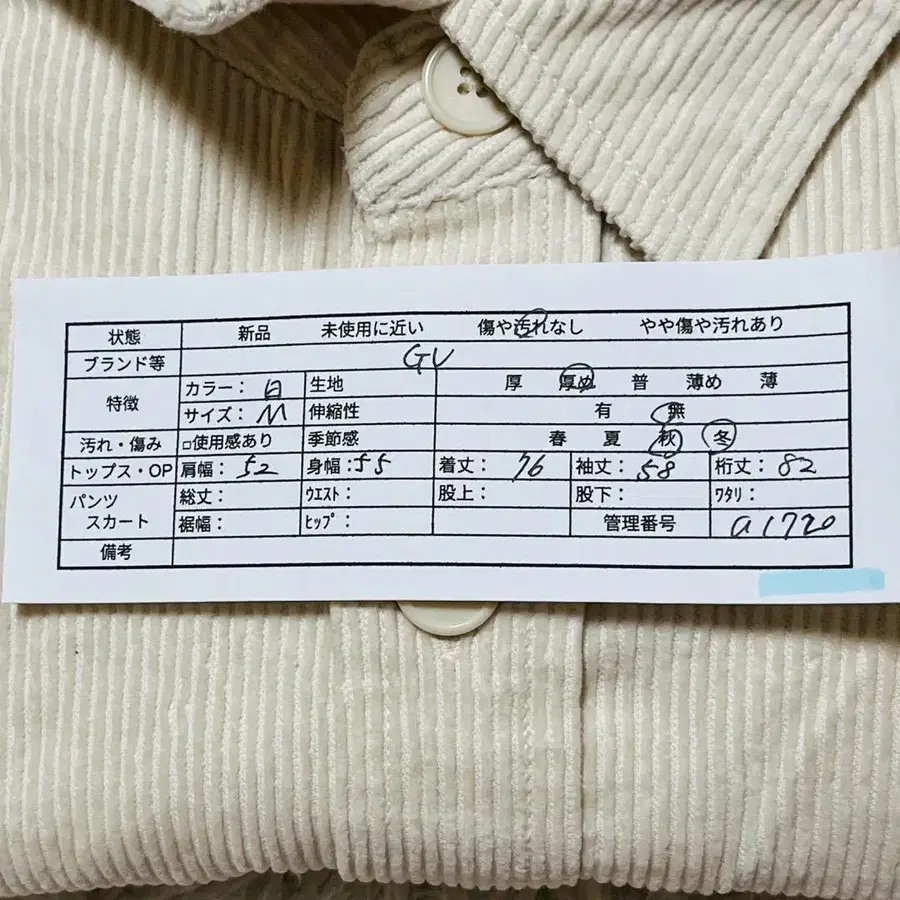 状態 新品 未使用に近い 傷や汚れなし やや傷や汚れあり
ブランド等 GU
特徴 カラー: 白 生地 厚 厚め 普 薄め 薄
サイズ: M 伸縮性 有 無
汚れ・傷み □使用感あり 季節感 春 夏 秋 冬
トップス・OP 肩幅: 52 身幅: 55 着丈: 76 袖丈: 58 桁丈: 82
パンツ スカート 総丈: ウエスト: 股上: 股下: ワタリ:
裾幅: ヒップ: 管理番号 a1720
備考